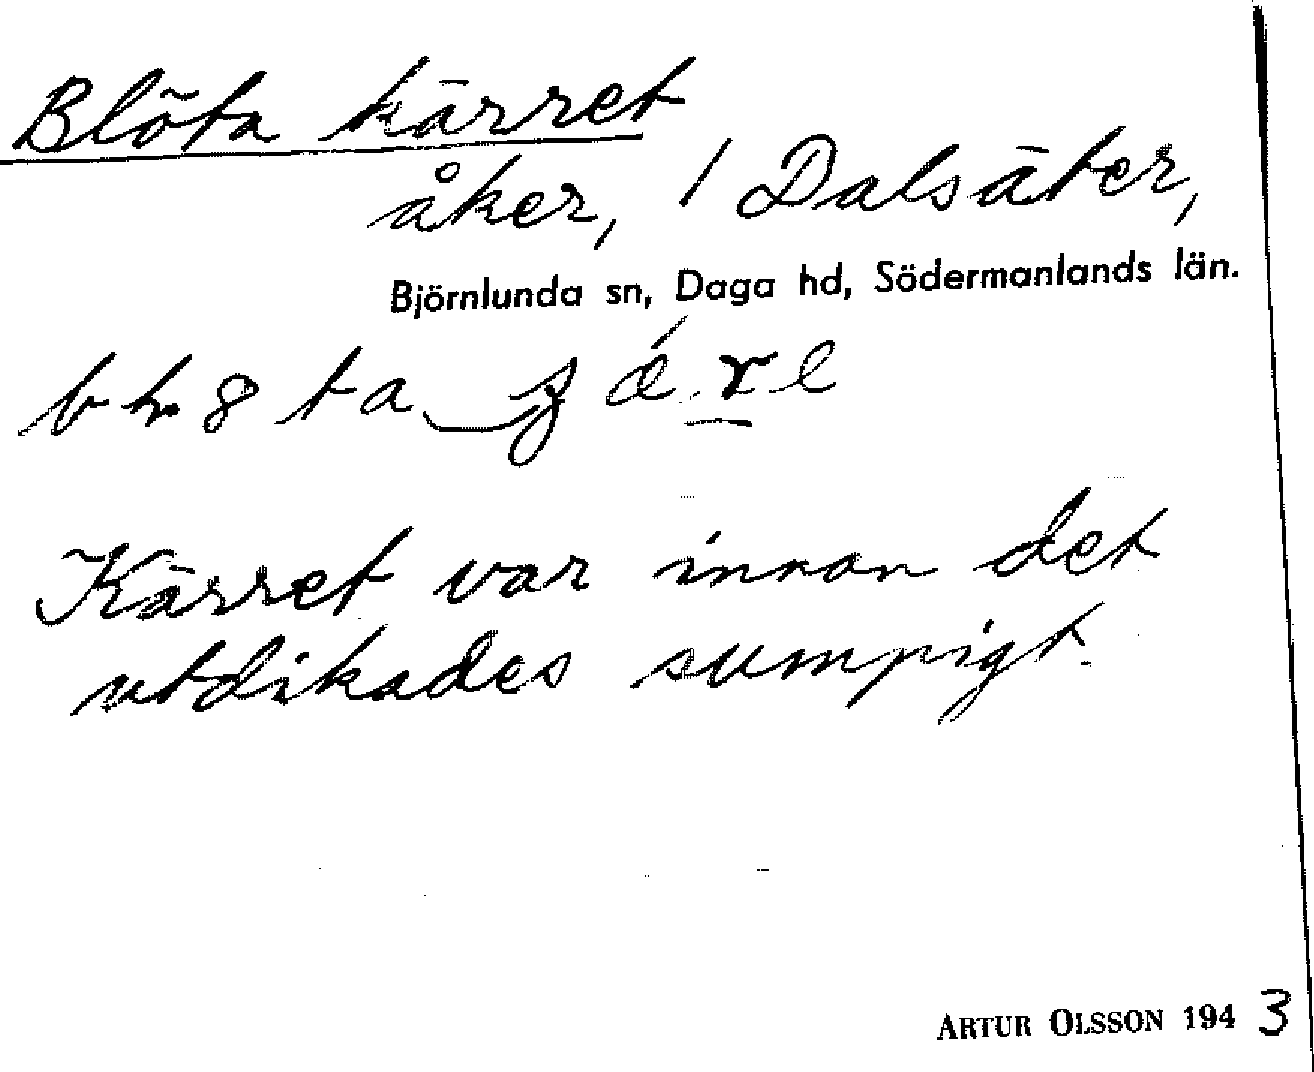 Blöta kärret
åker, / Dalsäter,
Björnlunda sn, Daga hd, Södermanlands län.
Kärret var innan det
utdikades sumpigt.
ARTUR OLSSON 1943